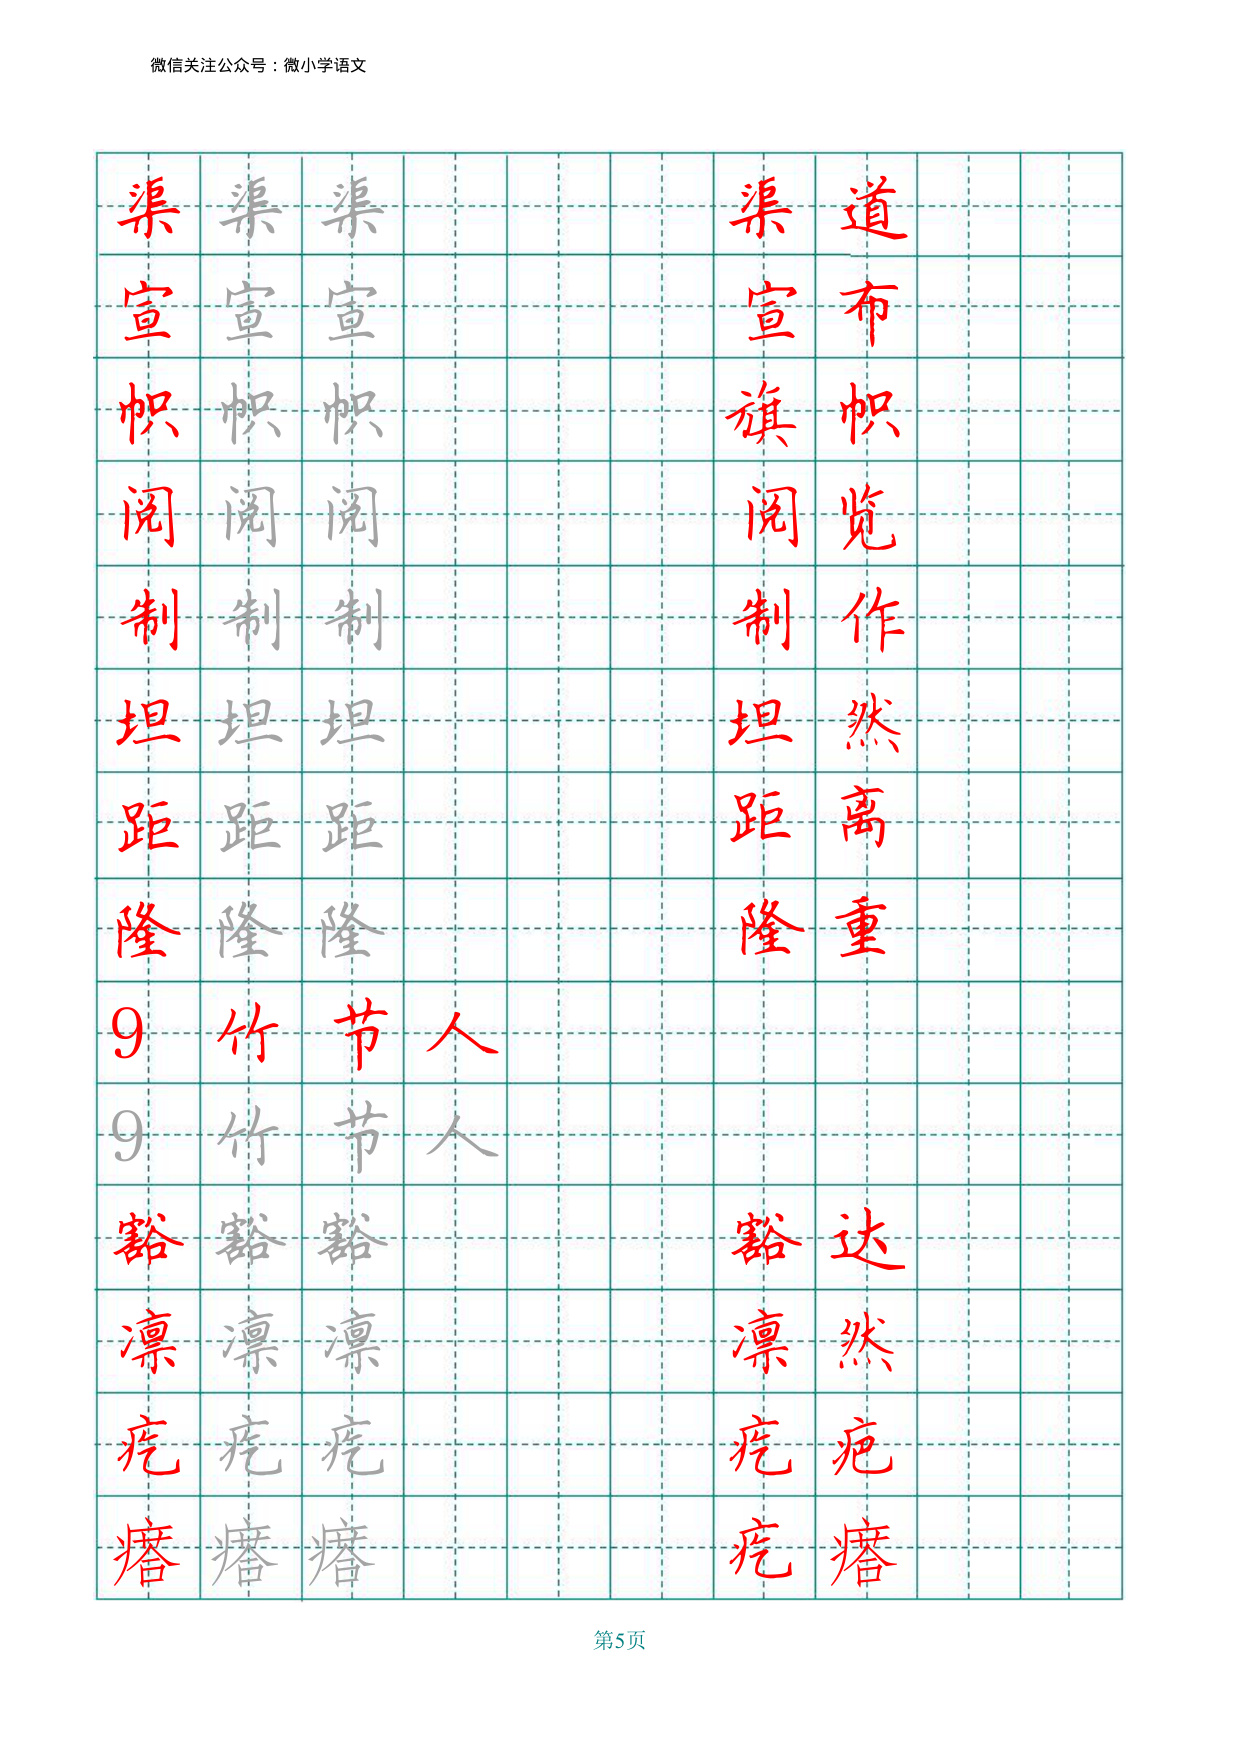 微信关注公众号：微小学语文
渠 渠 渠 渠 道
宣 宣 宣 宣 布
帜 帜 帜 旗 帜
阅 阅 阅 阅 览
制 制 制 制 作
坦 坦 坦 坦 然
距 距 距 距 离
隆 隆 隆 隆 重
9 竹 节 人
9 竹 节 人
豁 豁 豁 豁 达
凛 凛 凛 凛 然
疙 疙 疙 疙 疤
瘩 瘩 瘩 疙 瘩
第5页